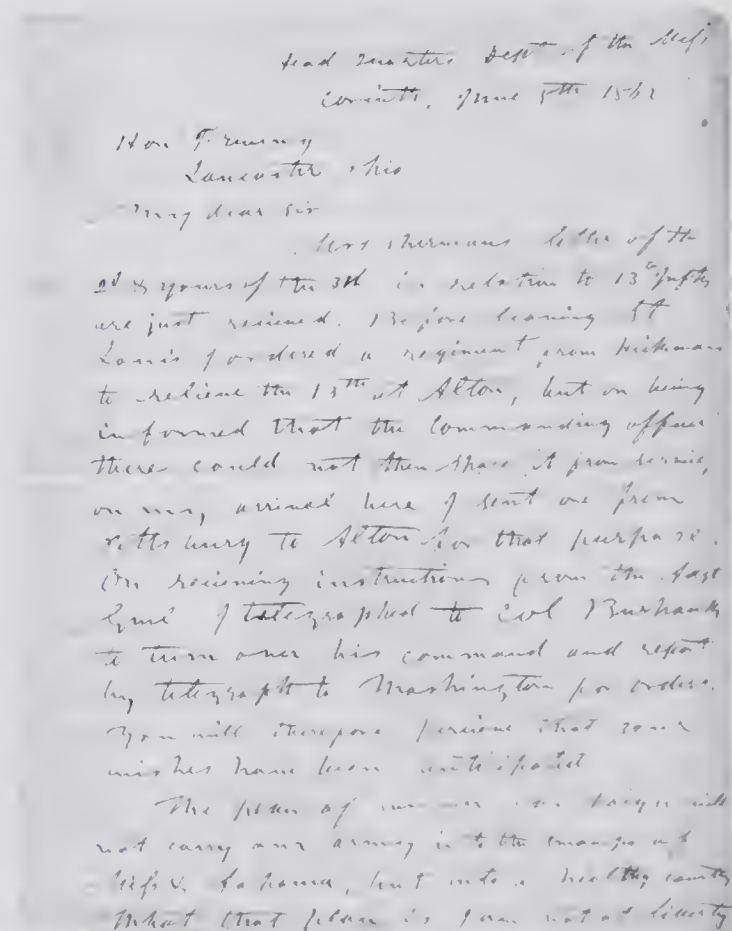 Head Quarters Dept of the Miss
Corinth, June 5th 1862
Hon T. Ewing
Lancaster Ohio
My dear Sir
Mrs Shermans letter of the
2d & yours of the 3d in relation to 13th Infty
are just recieved. Before leaving St
Louis I ordered a regiment from Hickman
to relieve the 13th at Alton, but on being
informed that the Commanding officer
there could not then spare it from service,
on my arrival here I sent one from
Pittsburg to Alton for that purpose.
On recieving instructions from the Adjt
Genl I telegraphed to Col Burbank
to turn over his command and report
by telegraph to Washington for orders.
You will therefore percieve that your
wishes have been anticipated
The plan of summer campaign will
not carry our army into the swamps of
Miss & Alabama, but into a healthy country
What that plan is I am not at liberty